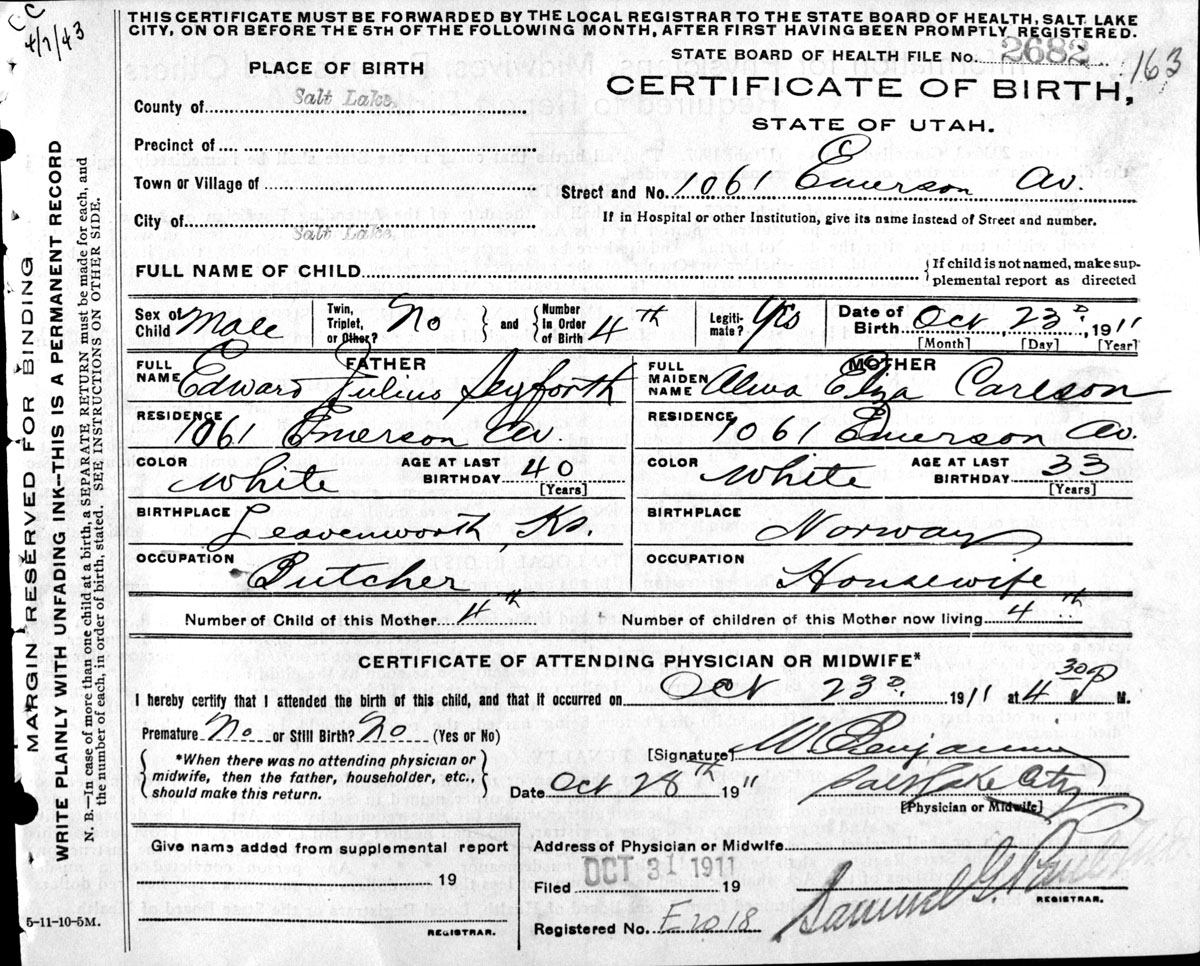 CC
4/7/43
THIS CERTIFICATE MUST BE FORWARDED BY THE LOCAL REGISTRAR TO THE STATE BOARD OF HEALTH, SALT LAKE
CITY, ON OR BEFORE THE 5TH OF THE FOLLOWING MONTH, AFTER FIRST HAVING BEEN PROMPTLY REGISTERED.
STATE BOARD OF HEALTH FILE No. 2682 163
PLACE OF BIRTH
CERTIFICATE OF BIRTH,
STATE OF UTAH.
County of Salt Lake,
Precinct of
Town or Village of
Street and No. 1061 Emerson Av.
City of Salt Lake,
If in Hospital or other Institution, give its name instead of Street and number.
FULL NAME OF CHILD
{If child is not named, make sup-
plemental report as directed
Sex of Child Male
Twin, Triplet, or Other? No
} and { Number in Order of Birth 4th
Legiti-mate? Yes
Date of Birth Oct 23d, 1911
[Month] [Day] [Year]
FATHER
FULL NAME Edward Julius Seyforth
RESIDENCE 1061 Emerson Av.
COLOR White AGE AT LAST BIRTHDAY 40 [Years]
BIRTHPLACE Leavenworth, Ks.
OCCUPATION Butcher
MOTHER
FULL MAIDEN NAME Eliza Carlson
RESIDENCE 1061 Emerson Av.
COLOR White AGE AT LAST BIRTHDAY 33 [Years]
BIRTHPLACE Norway
OCCUPATION Housewife
Number of Child of this Mother 4th Number of children of this Mother now living 4th
CERTIFICATE OF ATTENDING PHYSICIAN OR MIDWIFE*
I hereby certify that I attended the birth of this child, and that it occurred on Oct 23d, 1911 at 4 30 P M.
Premature No or Still Birth? No (Yes or No)
[Signature] Benjamin
{*When there was no attending physician or
midwife, then the father, householder, etc.,
should make this return.}
Date Oct 28th 1911 Salt Lake City
[Physician or Midwife]
Give name added from supplemental report
19
REGISTRAR.
Address of Physician or Midwife
Filed OCT 31 1911 19
Samuel G. Paul
REGISTRAR.
Registered No. E2018
5-11-10-5M.
MARGIN RESERVED FOR BINDING
WRITE PLAINLY WITH UNFADING INK—THIS IS A PERMANENT RECORD
N. B.—In case of more than one child at a birth, a SEPARATE RETURN must be made for each, and
the number of each, in order of birth, stated. SEE INSTRUCTIONS ON OTHER SIDE.